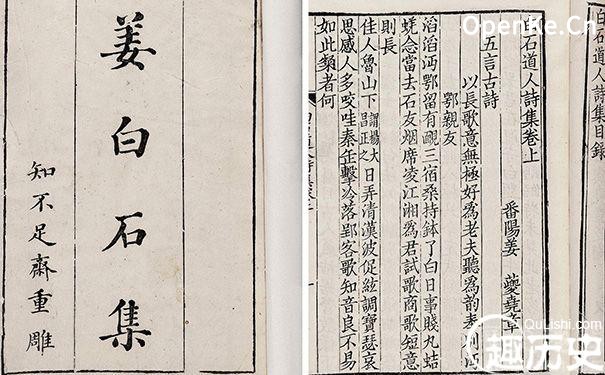 姜白石集
知不足齋重雕
白石道人詩集目錄
白石道人詩集卷上
番陽姜 夔堯章
五言古詩
以長歌意無極好爲老夫聽爲韵奉別沔
鄂親友
滔滔沔鄂留有靦三宿桑持鉢了白日事賤丸蛣
蜣念當去石友烟席凌江湘爲君試歌商歌短意
則長
佳人魯山下謂楊大昌正之日弄清漢波促絃調寶瑟哀
思感人多咬哇秦缶擊冷落郢客歌知音良不易
如此類者何
OpenKe.Cn
QuLishi.com
趣历史